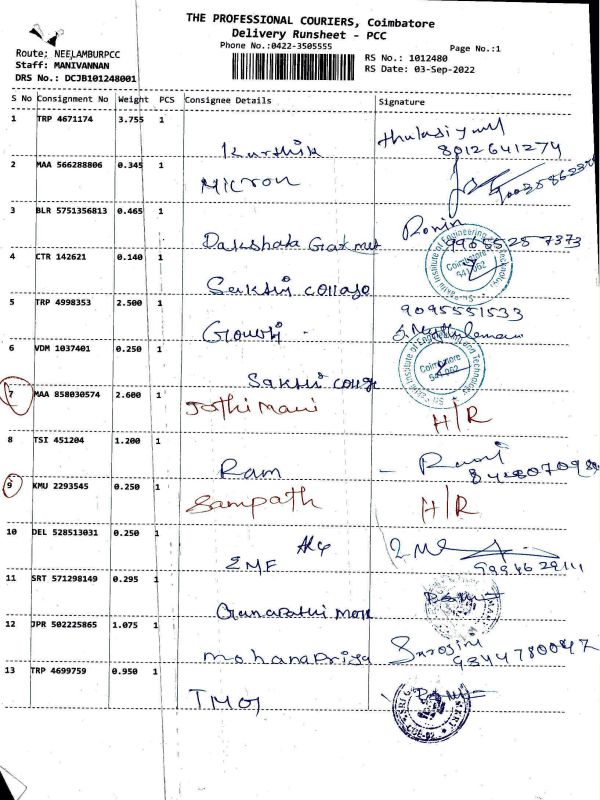 THE PROFESSIONAL COURIERS, Coimbatore
Delivery Runsheet - PCC
Phone No.:0422-3505555
Page No.:1
Route; NEELAMBURPCC
Staff: MANIVANNAN
DRS No.: DCJB101248001
RS No.: 1012480
RS Date: 03-Sep-2022
S No Consignment No Weight PCS Consignee Details Signature
1 TRP 4671174 3.755 1
Karthik 8012641274
2 MAA 566288806 0.345 1
MICRON
3 BLR 5751356813 0.465 1
Ronin
Dakshata
4 CTR 142621 0.140 1
Sakthi College
5 TRP 4998353 2.500 1
9095551533
Gowri
6 VDM 1037401 0.250 1
Sakthi College
7 MAA 858030574 2.600 1
Jothimani H/R
8 TSI 451204 1.200 1
Ram
9 KMU 2293545 0.250 1
Sampath H/R
10 DEL 528513031 0.250 1
EMF
11 SRT 571298149 0.295 1
Ganapathi
12 JPR 502225865 1.075 1
Mohanapriya Sarojini
9344780047
13 TRP 4699759 0.950 1